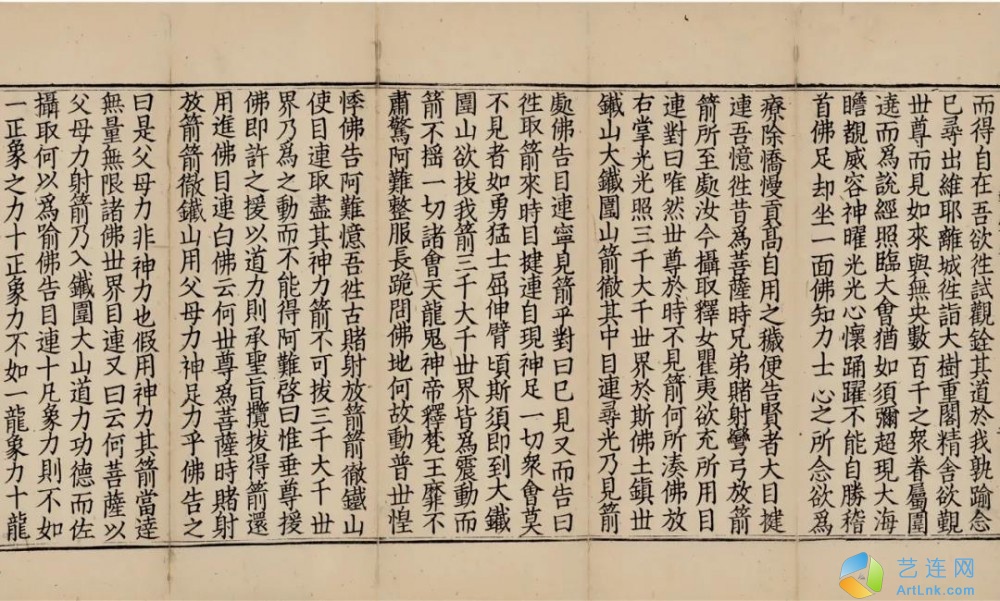 而得自在吾欲徃試觀銓其道於我孰踰念
巳尋出維耶離城徃詣大樹重閣精舍欲覲
丗尊而見如來與無央數百千之衆眷屬圍
遶而爲說經照臨大會猶如須彌超現大海
瞻覩威容神曜光光心懷踊躍不能自勝稽
首佛足却坐一面佛知力士心之所念欲爲
療除憍慢貢高自用之穢便告賢者大目揵
連吾憶徃昔爲菩薩時兄弟賭射彎弓放箭
箭所至處汝今攝取釋女瞿夷欲充所用目
連對曰唯然丗尊於時不見箭何所湊佛放
右掌光光照三千大千丗界於斯佛土鎮丗
鐵山大鐵圍山箭徹其中目連尋光乃見箭
處佛告目連寧見箭乎對曰巳見又而告曰
徃取箭來時目揵連自現神足一切衆會莫
不見者如勇猛士屈伸臂頃斯須即到大鐵
圍山欲拔我箭三千大千丗界皆爲震動而
箭不揺一切諸會天龍鬼神帝釋梵王靡不
肅驚阿難整服長跪問佛地何故動普丗惶
悸佛告阿難憶吾徃古賭射放箭箭徹鐵山
使目連取盡其神力箭不可拔三千大千丗
界乃爲之動而不能得阿難啓曰惟垂尊援
佛即許之援以道力則承聖旨攬拔得箭還
用進佛目連白佛云何丗尊爲菩薩時賭射
放箭箭徹鐵山用父母力神足力乎佛告之
曰是父母力非神力也假用神力其箭當逹
無量無限諸佛丗界目連又曰云何菩薩以
父母力射箭乃入鐵圍大山道力功德而佐
攝取何以爲喻佛告目連十凡象力則不如
一正象之力十正象力不如一龍象力十龍
艺连网
ArtLnk.com